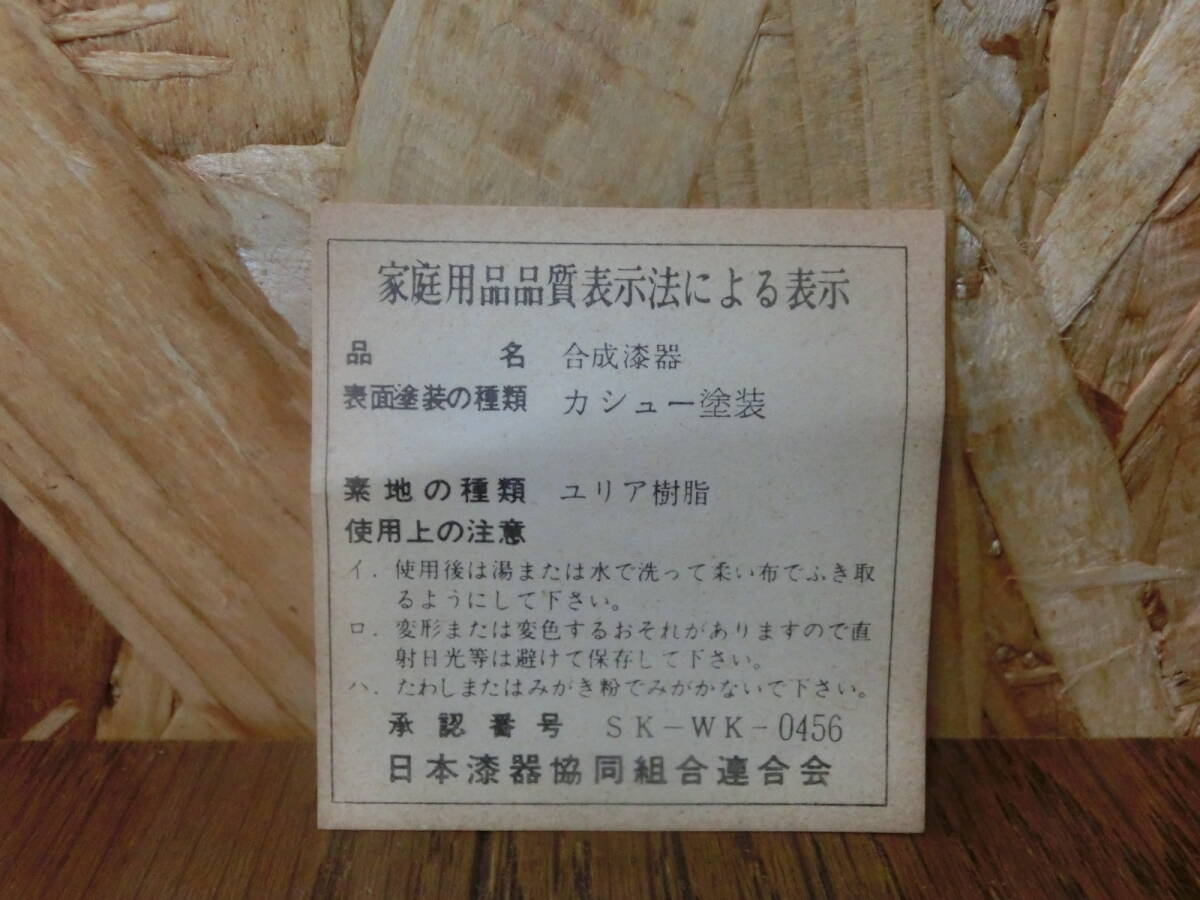 家庭用品品質表示法による表示
品名 合成漆器
表面塗装の種類 カシュー塗装
素地の種類 ユリア樹脂
使用上の注意
イ. 使用後は湯または水で洗って柔い布でふき取
るようにして下さい。
ロ. 変形または変色するおそれがありますので直
射日光等は避けて保存して下さい。
ハ. たわしまたはみがき粉でみがかないで下さい。
承認番号 SK-WK-0456
日本漆器協同組合連合会